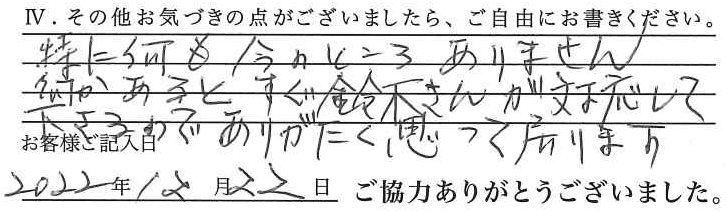 Ⅳ．その他お気づきの点がございましたら、ご自由にお書きください。
特に何も今のところありません
何かあるとすぐ鈴木さんが対応して
下さるのでありがたく思って居ります
お客様ご記入日
2022年12月22日 ご協力ありがとうございました。